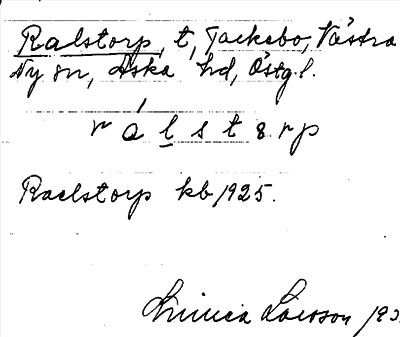 Ralstorp, t, Tackebo, Västra
Ny sn, Aska hd, Östgl.
rálstərp
Raelstorp kb 1925.
Linnea Larsson 193